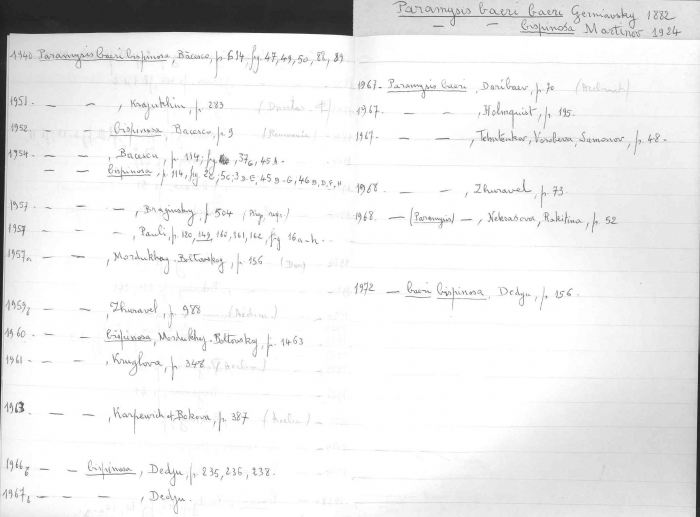 Paramysis baeri baeri Czerniavsky 1882
— — bispinosa Martinov 1924
1940 Paramysis baeri bispinosa, Băcesco, p. 614, fig 47, 49, 50, 88, 89
1951. — — , p. 283
1952. — bispinosa Bacescu, p. 9
1954 — — , Bacescu, p. 114, fig 37G, 45A.
— — bispinosa, p. 114, fig
1957 — — , Braginsky, p. 504
1957 — — , Pauli, p. 120, 149, 160, 161, 162, fig 16a-h.
1957a — — , Mordukhay-Boltovskoy, p. 156 (Don)
1959b — — , Zhuravel, p. 988
1960 — — bispinosa, Mordukhay-Boltovskoy, p. 1463
1961 — — , Kruglova, p. 348
1963 — — , Karpevich et Bokova, p. 387
1966b — — bispinosa, Dedyu, p. 235, 236, 238.
1967b — — , Dedyu.
1967 — Paramysis baeri, Daribaev, p. 70
1967 — — , Holmquist, p. 195.
1967 — — , p. 48.
1968 — — , Zhuravel, p. 73
1968. — (Paramysis) — , Nekrasova, Rakitina, p. 52
1972 — baeri bispinosa, Dedyu, p. 156.